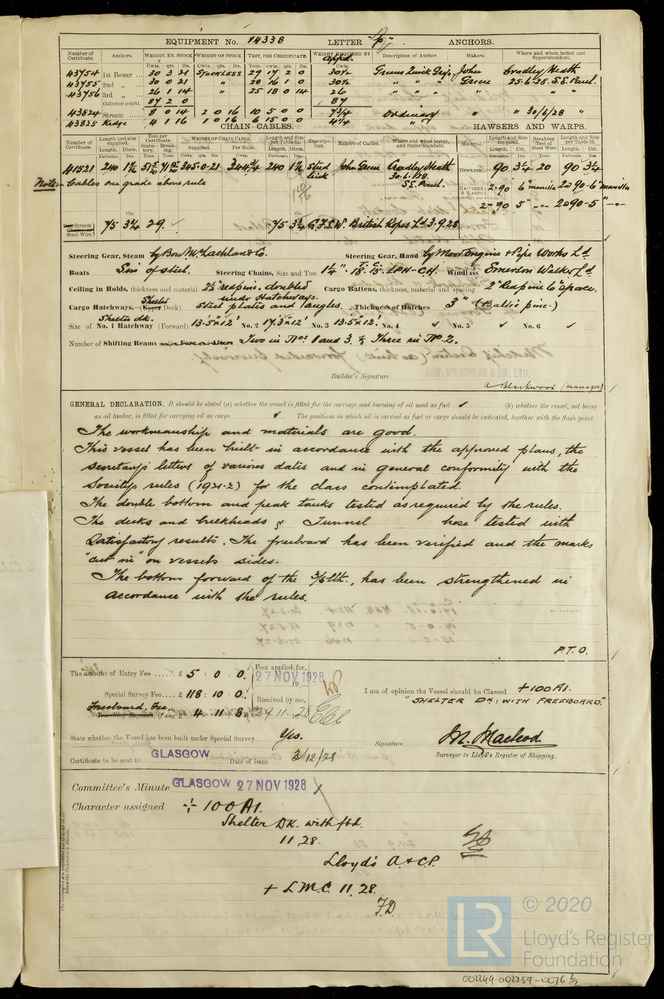 EQUIPMENT No. 14338 LETTER "p" ANCHORS.
Number of Certificate. Anchors. WEIGHT, EX. STOCK WEIGHT OF STOCK TEST, PER CERTIFICATE. WEIGHT REQUIRED BY Description of Anchor. Makers. Where and when tested and Superintendent.
43754 1st Bower 30 3 21 Stockless 29 17 2 0 30½ Greens Quick Grip John Cradley Heath
43755 2nd „ 30 0 21 „ 30½ „ „ „ Green 25·6·28 S.E. Paul.
43756 3rd „ 26 1 14 „ 25 18 0 14 26 „ „ „
Collective weight. 87 2 0 87
43824 Stream 8 0 14 2 0 16 10 5 0 0 7¾ Ordinary „ „ 30/6/28 „
43825 Kedge 4 1 16 1 0 16 6 15 0 0 4¼ „
CHAIN CABLES. HAWSERS AND WARPS.
41521 240 345-0-21 240 Stud link John Green Cradley Heath 90 3¼ 20 90 3¼
30·6·28. S.E. Paul.
Note:- Cables one grade above rule
2-90 6" manilla 2 @ 90-6" manilla
2-90 5" 2 @ 90-5"
75 3¾ 29. 75 3¾ G.F.S.W. British Ropes Ld 3.9.28
Steering Gear, Steam by Bow McLachlan & Co. Steering Gear, Hand by Moor Engine & Pipe Works Ld
Boats Steering Chains, Size and Test Windlass Emerson Walker Ld
Ceiling in Holds, thickness and material 2½" redpine, doubled under Hatchways. Cargo Battens, thickness, material and spacing 2" Redpine 6" space.
Cargo Hatchways. Shelter steel plates and angles. Thickness of Hatches 3" (Baltic pine)
Shelter dk.
Size of No. 1 Hatchway (Forward) 13'-5"x12' No. 2 17'-3"x12' No. 3 13'-5"x12' No. 4 ✓ No. 5 ✓ No. 6 ✓
Number of Shifting Beams Two in Nos 1 and 3. & Three in No 2.
BOW, McLACHLAN & CO., LTD.
Builder's Signature
A Blackwood (manager)
GENERAL DECLARATION. It should be stated (a) whether the vessel is fitted for the carriage and burning of oil used as fuel ✓ (b) whether the vessel, not being
an oil tanker, is fitted for carrying oil as cargo ✓ The positions in which oil is carried as fuel or cargo should be indicated, together with the flash point.
The workmanship and materials are good.
This vessel has been built in accordance with the approved plans, the
Secretary's letters of various dates and in general conformity with the
Society's rules (1921-2) for the class contemplated.
The double bottom and peak tanks tested as required by the rules.
The decks and bulkheads & Tunnel hose tested with
Satisfactory results. The freeboard has been verified and the marks
"cut in" on vessels sides.
The bottom forward of the 3/5 lth., has been strengthened in
accordance with the rules.
P.T.O.
The amount of Entry Fee £ 5 : 0 : 0 Fees applied for, 27 NOV 1928
Special Survey Fee £ 118 : 10 : 0 Received by me,
Freeboard, Fee. £ 14 : 11 : 8 29 11 28
I am of opinion the Vessel should be Classed +100A1.
"SHELTER DK: WITH FREEBOARD"
State whether the Vessel has been built under Special Survey Yes.
Signature M. Macleod
Surveyor to Lloyd's Register of Shipping.
Certificate to be sent to GLASGOW Date of issue 3/12/28
Committee's Minute GLASGOW 27 NOV 1928
Character assigned + 100A1.
Shelter Dk. with fbd.
11 28.
Lloyd's A & CP.
+ L.M.C. 11.28.
F.D.
LR
© 2020
Lloyd's Register
Foundation
002249-002259-0076 ½